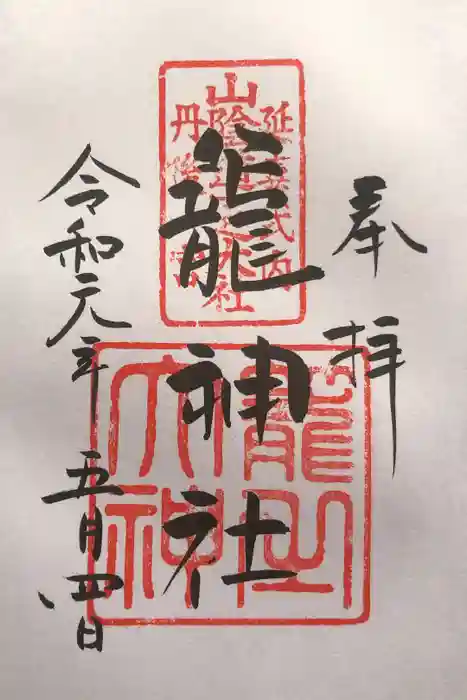 奉拝
延喜式内
山陰道
大社
丹後
籠神社
籠之
大神
令和元年五月四日